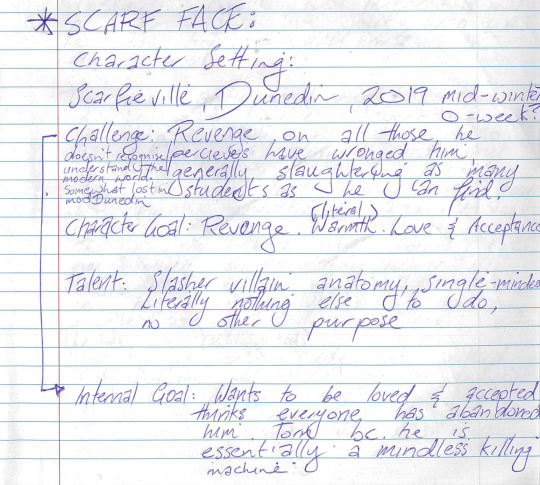 * SCARF FACE:
Character Setting:
Scarfieville, Dunedin, 2019 mid-winter
O-week?
Challenge: Revenge on all those he
percieves have wronged him,
generally slaughtering as many
students as he can find.
doesn't recognise/
understand the
modern world.
Somewhat lost in
mod Dunedin
(literal)
Character Goal: Revenge. Warmth. Love & Acceptance
Talent: Slasher villain anatomy, single-minded
Literally nothing else to do,
no other purpose
Internal Goal: Wants to be loved & accepted
thinks everyone has abandoned
him. Torn bc. he is
essentially a mindless killing
machine.